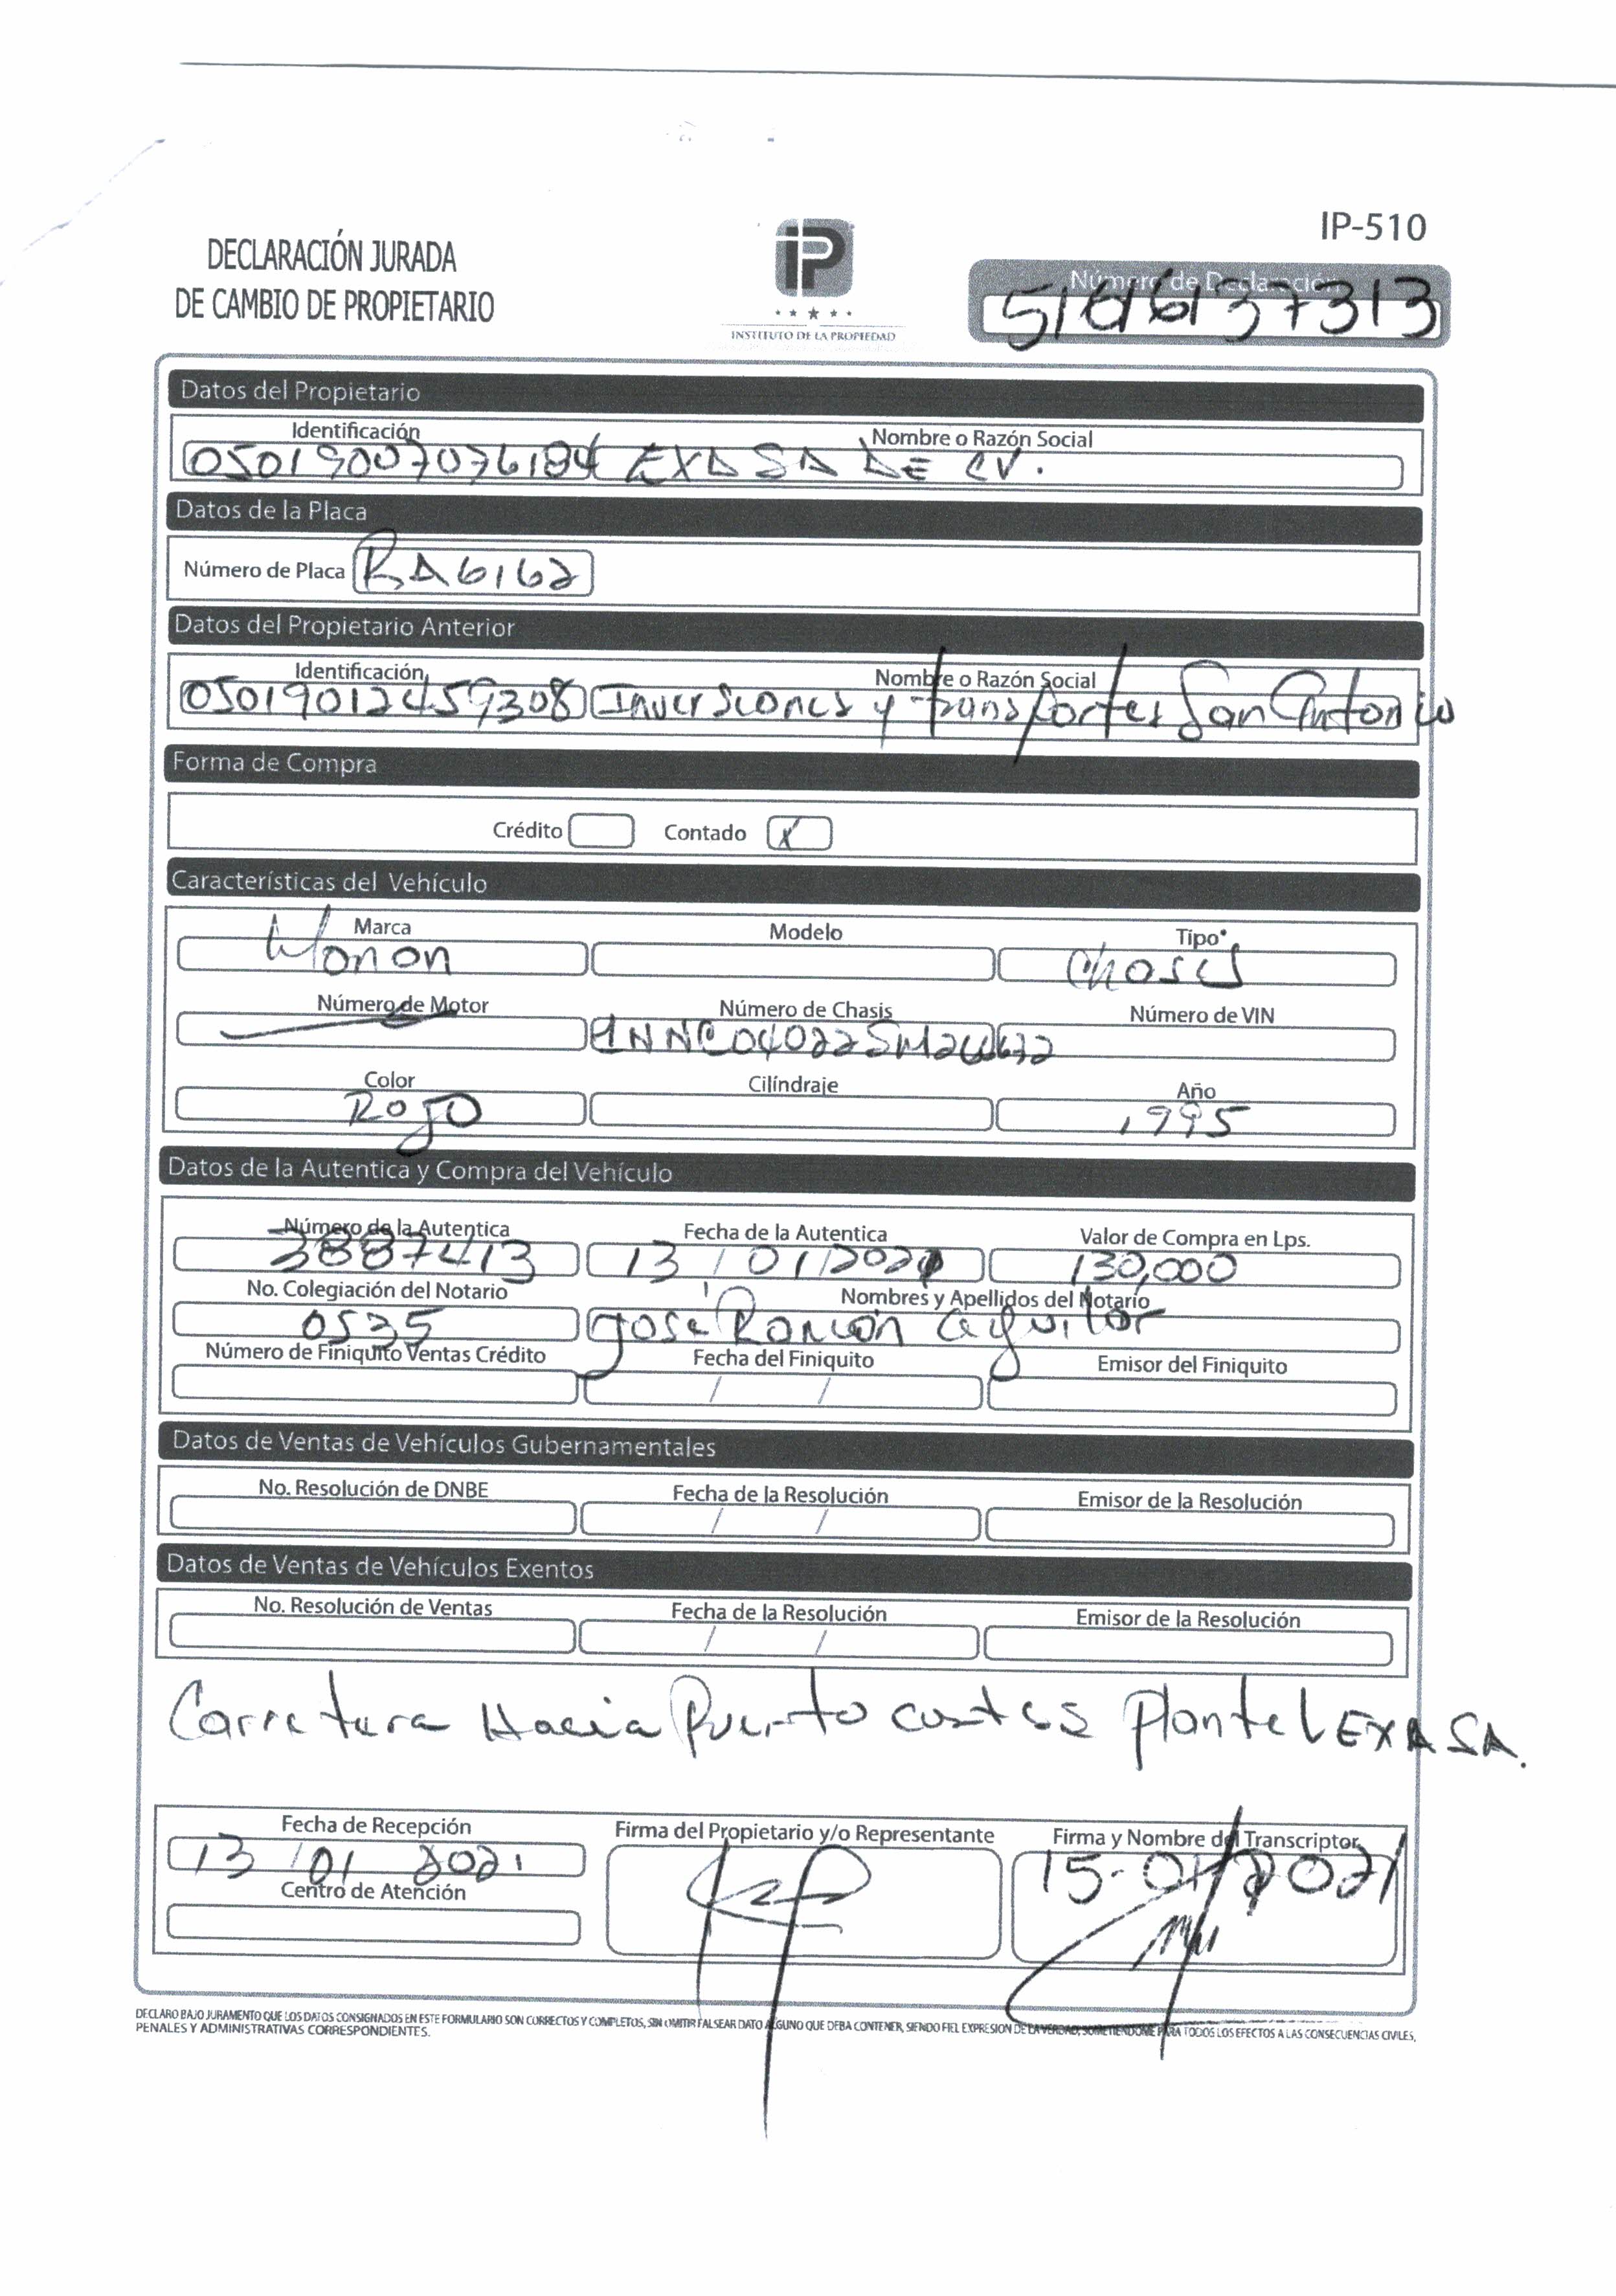 IP-510
DECLARACIÓN JURADA
DE CAMBIO DE PROPIETARIO
iP
INSTITUTO DE LA PROPIEDAD
Número de Declaración
Datos del Propietario
Identificación Nombre o Razón Social
05019007076184 EXA SA DE CV.
Datos de la Placa
Número de Placa RA6162
Datos del Propietario Anterior
Identificación Nombre o Razón Social
05019012459308 Inversiones y transportes San Antonio
Forma de Compra
Crédito Contado X
Características del Vehículo
Marca Modelo Tipo*
Monon Chasis
Número de Motor Número de Chasis Número de VIN
Color Cilíndraje Año
Rojo 1995
Datos de la Autentica y Compra del Vehículo
Número de la Autentica Fecha de la Autentica Valor de Compra en Lps.
3887413 13 / 01/2021 130,000
No. Colegiación del Notario Nombres y Apellidos del Notario
0535 Jose Ramon Aguilar
Número de Finiquito Ventas Crédito Fecha del Finiquito Emisor del Finiquito
/ /
Datos de Ventas de Vehículos Gubernamentales
No. Resolución de DNBE Fecha de la Resolución Emisor de la Resolución
/ /
Datos de Ventas de Vehículos Exentos
No. Resolución de Ventas Fecha de la Resolución Emisor de la Resolución
/ /
Carretera Hacia Puerto cortes Plantel EXA SA.
Fecha de Recepción Firma del Propietario y/o Representante Firma y Nombre del Transcriptor
13 / 01 2021 15-01-2021
Centro de Atención
DECLARO BAJO JURAMENTO QUE LOS DATOS CONSIGNADOS EN ESTE FORMULARIO SON CORRECTOS Y COMPLETOS, SIN OMITIR FALSEAR DATO ALGUNO QUE DEBA CONTENER, SIENDO FIEL EXPRESION DE LA VERDAD, SOMETIENDOME PARA TODOS LOS EFECTOS A LAS CONSECUENCIAS CIVILES,
PENALES Y ADMINISTRATIVAS CORRESPONDIENTES.